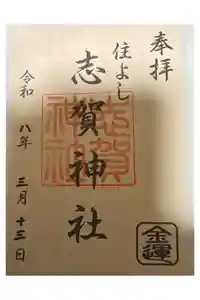 奉拝
住よし
志賀神社
志賀神社
令和八年三月十三日
金運